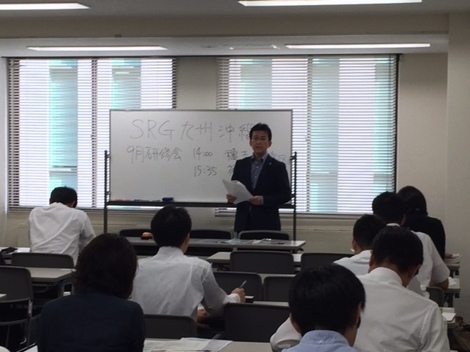 SRG九州沖縄
9月研修会 14:00
15:35